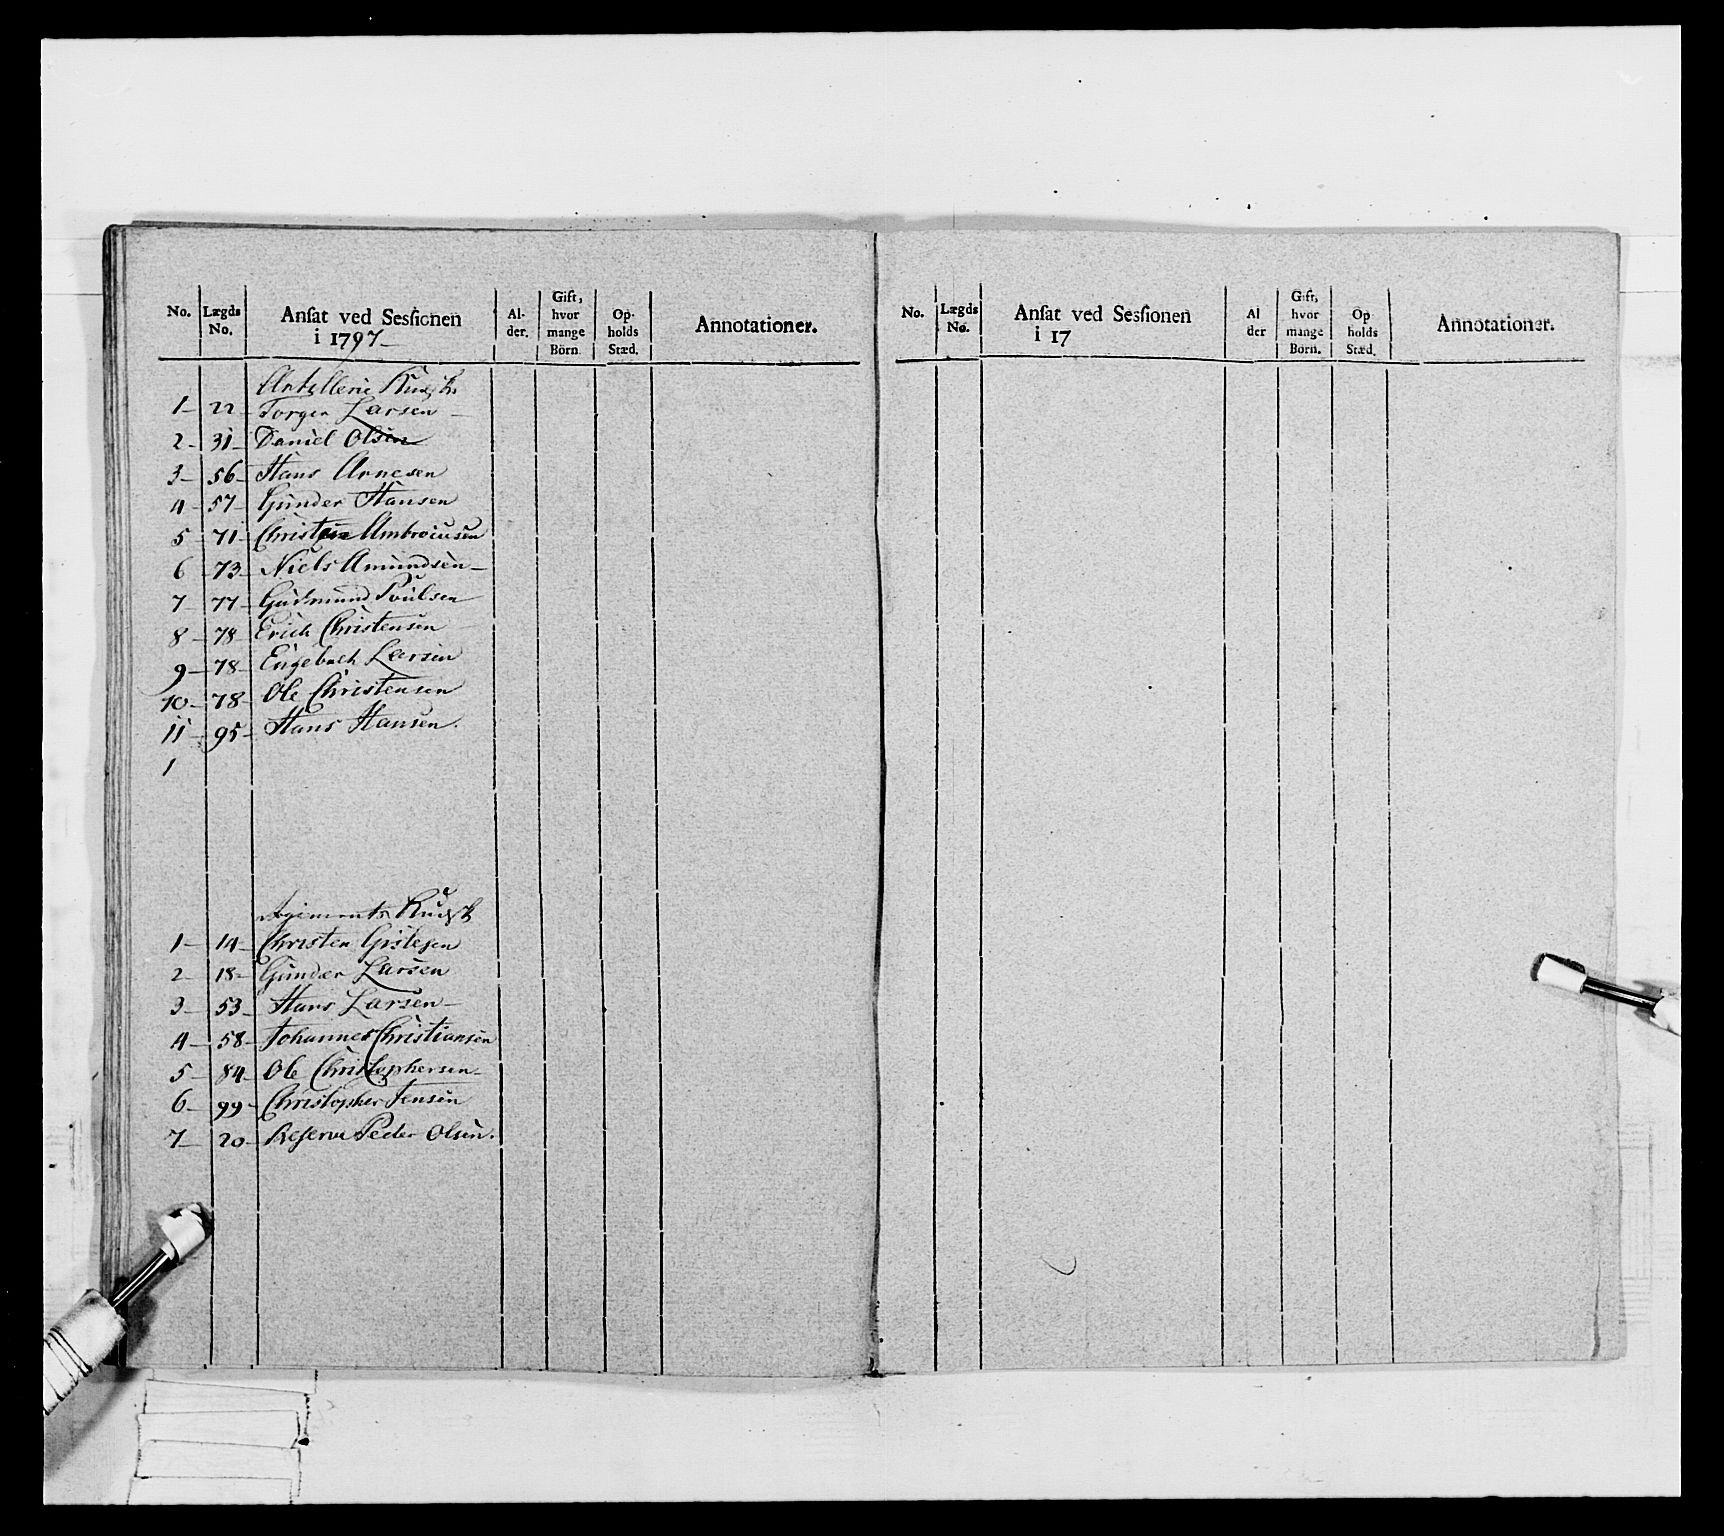 No. Lægds No. Ansat ved Sessionen i 1797 Al- der. Gift, hvor mange Börn Op- holds Stæd. Annotationer.
Artillerie Kudsk
1 22 Torger Larsen
2 31 Daniel Olsen
3 56 Hans Arnesen
4 57 Gunder Hansen
5 71 Christen Ambroiusen
6 73 Niels Amundsen
7 77 Gudmund Poulsen
8 78 Erich Christensen
9 78 Engebach Larsen
10 78 Ole Christensen
11 95 Hans Hansen.
1
Regiments Kudsk
1 14 Christen Gislesen
2 18 Gunder Larsen
3 53 Hans Larsen
4 58 Johannes Christiansen
5 84 Ole Christophersen
6 99 Christopher Jensen
7 20 Reserve Peder Olsen.
No. Lægds No. Ansat ved Sessionen i 17 Al der Gift, hvor mange Börn. Op holds Stæd. Annotationer.